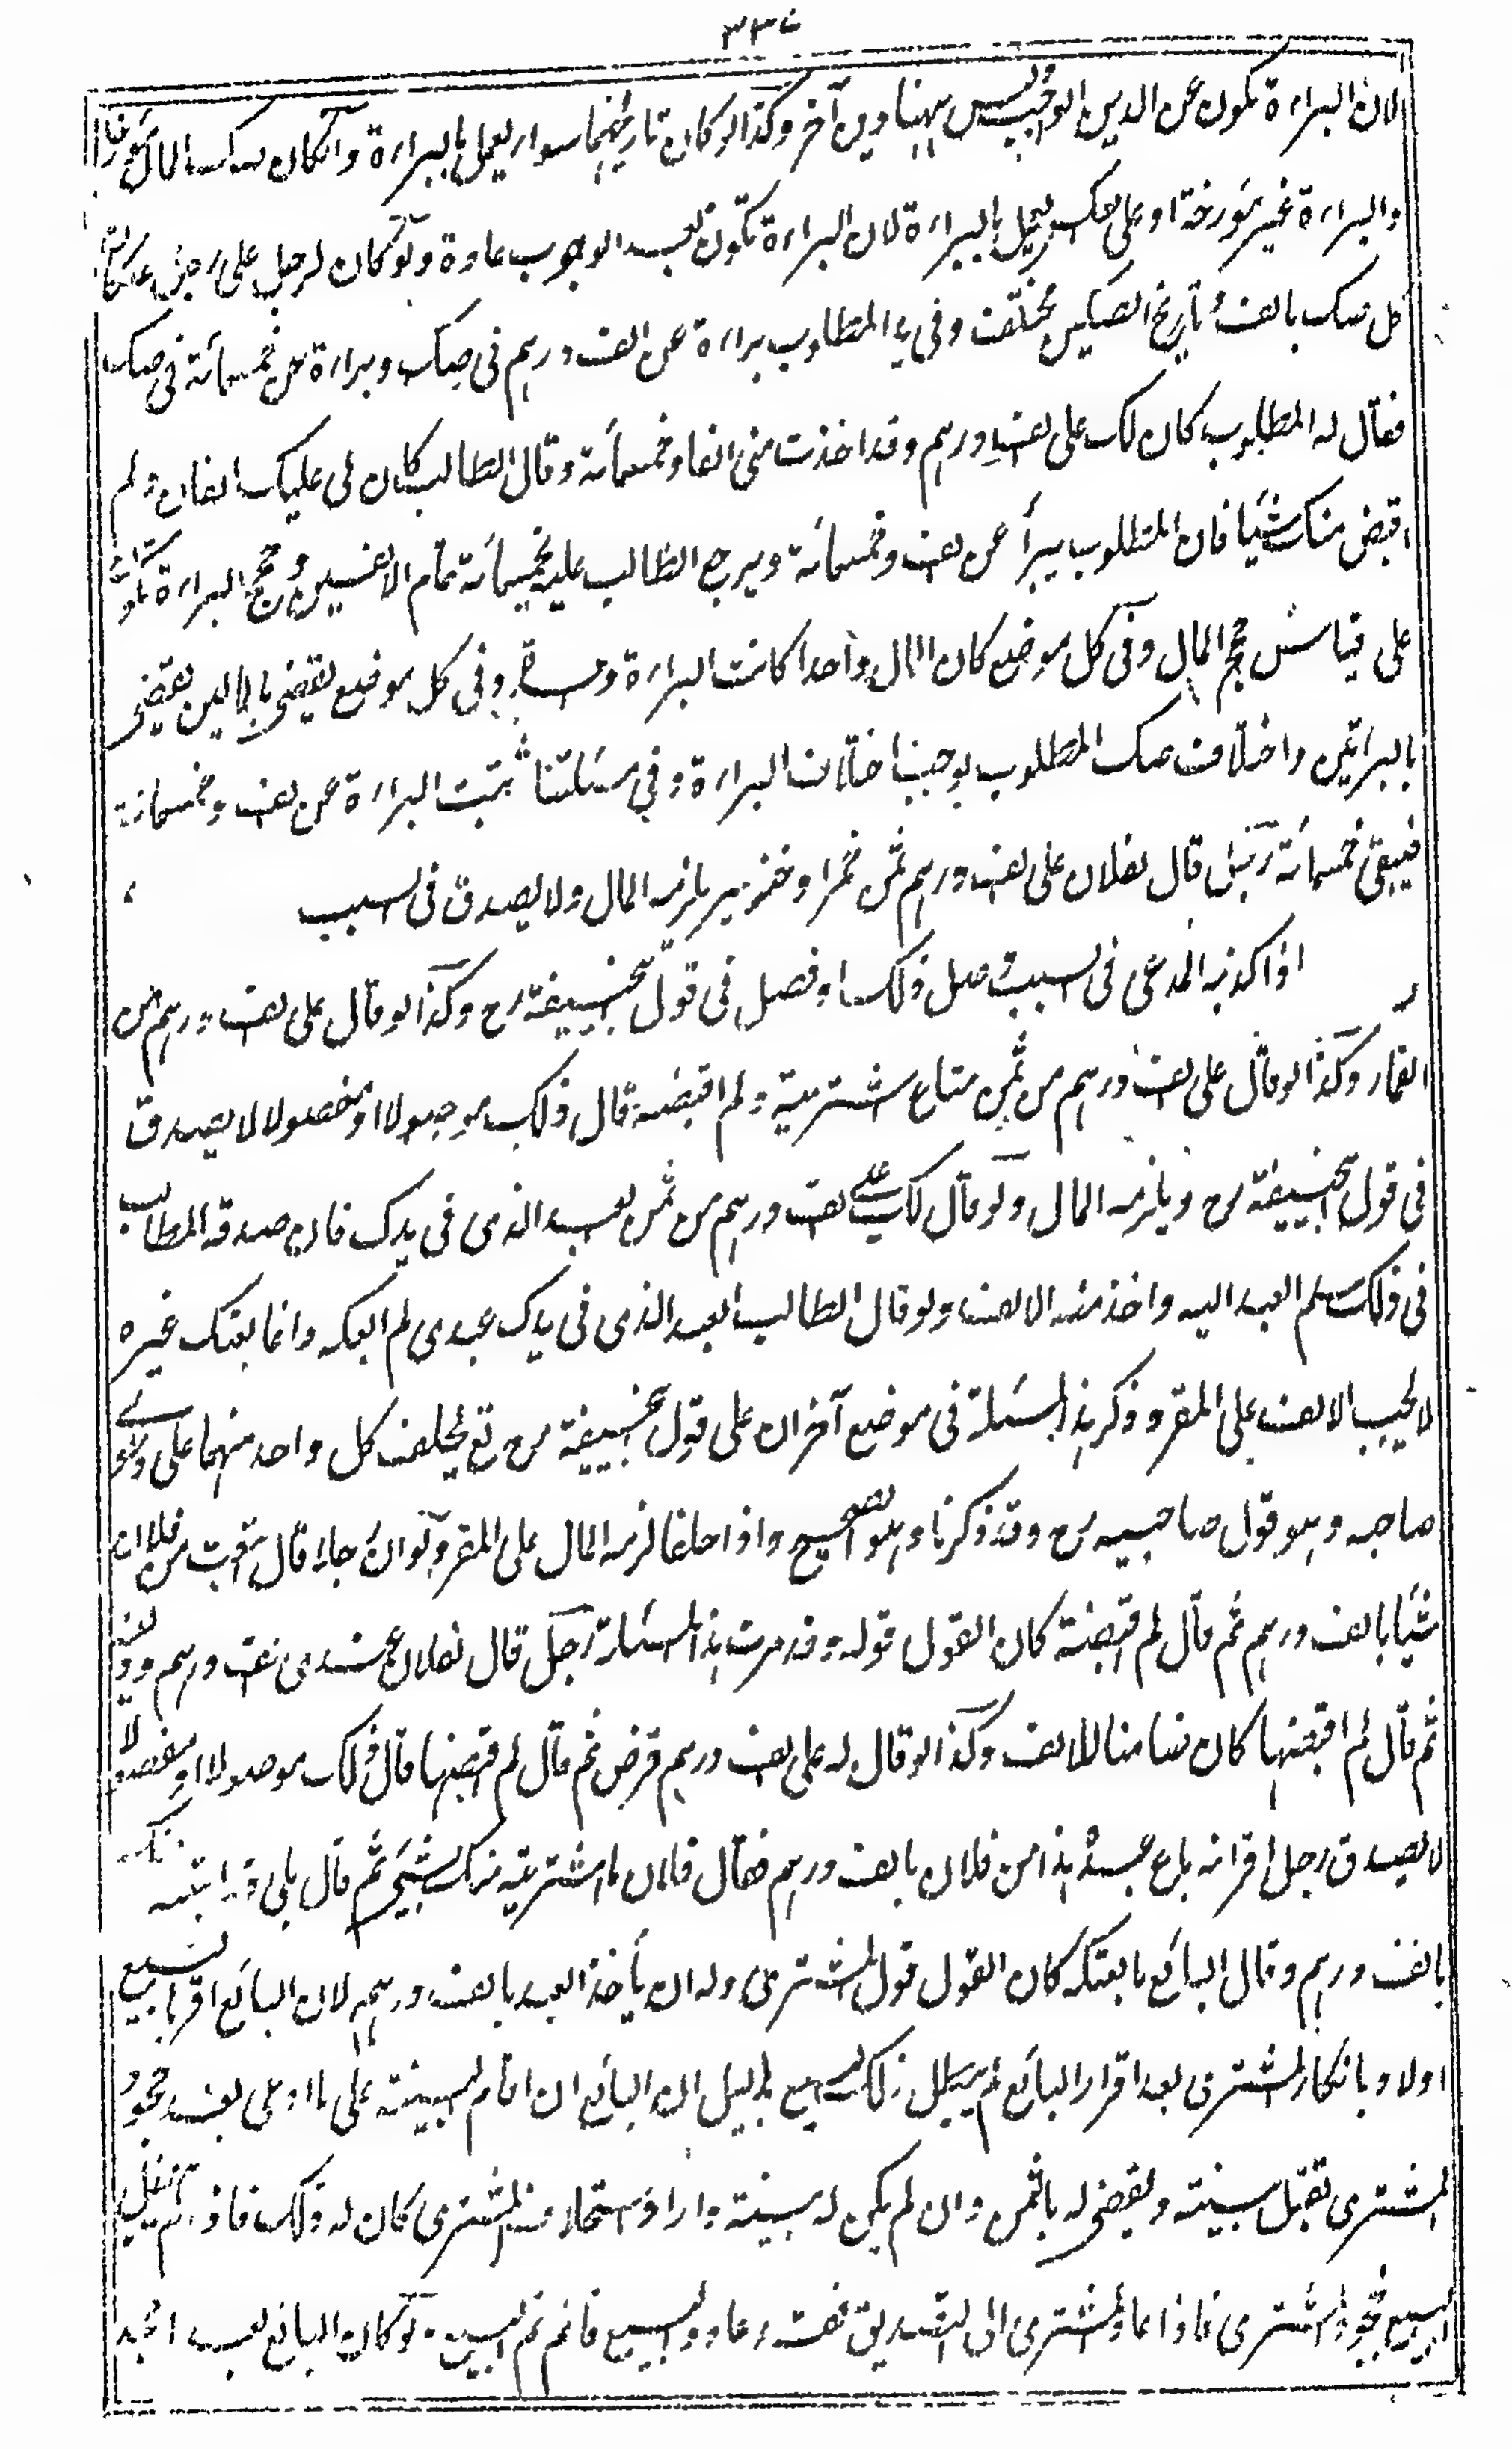 لان البراءة تكون عن الدين الواجب وليس ههنا دين آخر وكذا لو كان تاريخهما سواء يعمل بالبراءة وان كان صك المال مؤرخا
والبراءة غير مؤرخة او على العكس يعمل بالبراءة لان البراءة تكون بعد الوجوب عادة ولو كان لرجل على رجل صكان
كل صك بالف وتاريخ الصكين مختلف وفي يد المطلوب براءة عن الف درهم في صك وبراءة عن خمسمائة في صك
فقال له المطلوب كان لك علي الف درهم وقد اخذت مني الفا وخمسمائة وقال الطالب كان لي عليك الفان ولم
اقبض منك شيئا فان المطلوب يبرأ عن الف وخمسمائة ويرجع الطالب عليه بخمسمائة تمام الالفين وحجج البراءة تكون
على قياس حجج المال وفي كل موضع كان المال واحدا كانت البراءة وفي كل موضع يقضى بالمالين يقضى
بالبراءتين واختلاف صك المطلوب يوجب اختلاف البراءة وفي مسئلتنا ثبتت البراءة عن الف وخمسمائة
فيبقى خمسمائة رجل قال لفلان علي الف درهم ثمن خمر او خنزير يلزمه المال ولا يصدق في السبب
اذا كذبه المدعي في السبب وصل ذلك او فصل في قول ابيحنيفة رح وكذا لو قال علي الف درهم من
القمار وكذا لو قال علي الف درهم من ثمن متاع اشتريته ولم اقبضه قال ذلك موصولا او مفصولا لا يصدق
في قول ابيحنيفة رح ويلزمه المال ولو قال لك علي الف درهم من ثمن العبد الذي في يدك فان صدقه الطالب
في ذلك سلم العبد اليه واخذ منه الالف ولو قال الطالب العبد الذي في يدك عبدي لم ابعكه وانما بعتك غيره
لا يجب الالف على المقر وذكر هذه المسئلة في موضع آخر ان على قول ابيحنيفة رح تع يحلف كل واحد منهما على دعوى
صاحبه وهو قول صاحبيه رح وقد ذكرنا وهو الصحيح واذا حلفا لزمه المال على المقر ولو ان رجلا قال ابتعت من فلان
شيئا بالف درهم ثم قال لم اقبضه كان القول قوله وقد مرت هذه المسئلة رجل قال لفلان عندي الف درهم وديعة
ثم قال لم اقبضها كان ضامنا للالف وكذا لو قال له علي الف درهم قرض ثم قال لم اقبضها قال ذلك موصولا او مفصولا
لا يصدق رجل اقر انه باع عبده هذا من فلان بالف درهم فقال فلان ما اشتريته منك بشيئ ثم قال بلى قد ابتعته منك
بالف درهم وقال البائع ما بعتكه كان القول قول المشتري وله ان يأخذ العبد بالف درهم لان البائع اقر بالبيع
اولا وبانكار المشتري بعد اقرار البائع لم يبطل ذلك البيع بدليل ان البائع ان اقام البينة على ما ادعى بعد جحود
المشتري تقبل بينته ويقضى له بالثمن وان لم يكن له بينة واراد استحلاف المشتري كان له ذلك فاذا لم يبطل
البيع بجحود المشتري فاذا عاد المشتري الى التصديق فقد عاد والبيع قائم ثم البيع ولو كان البائع بعد